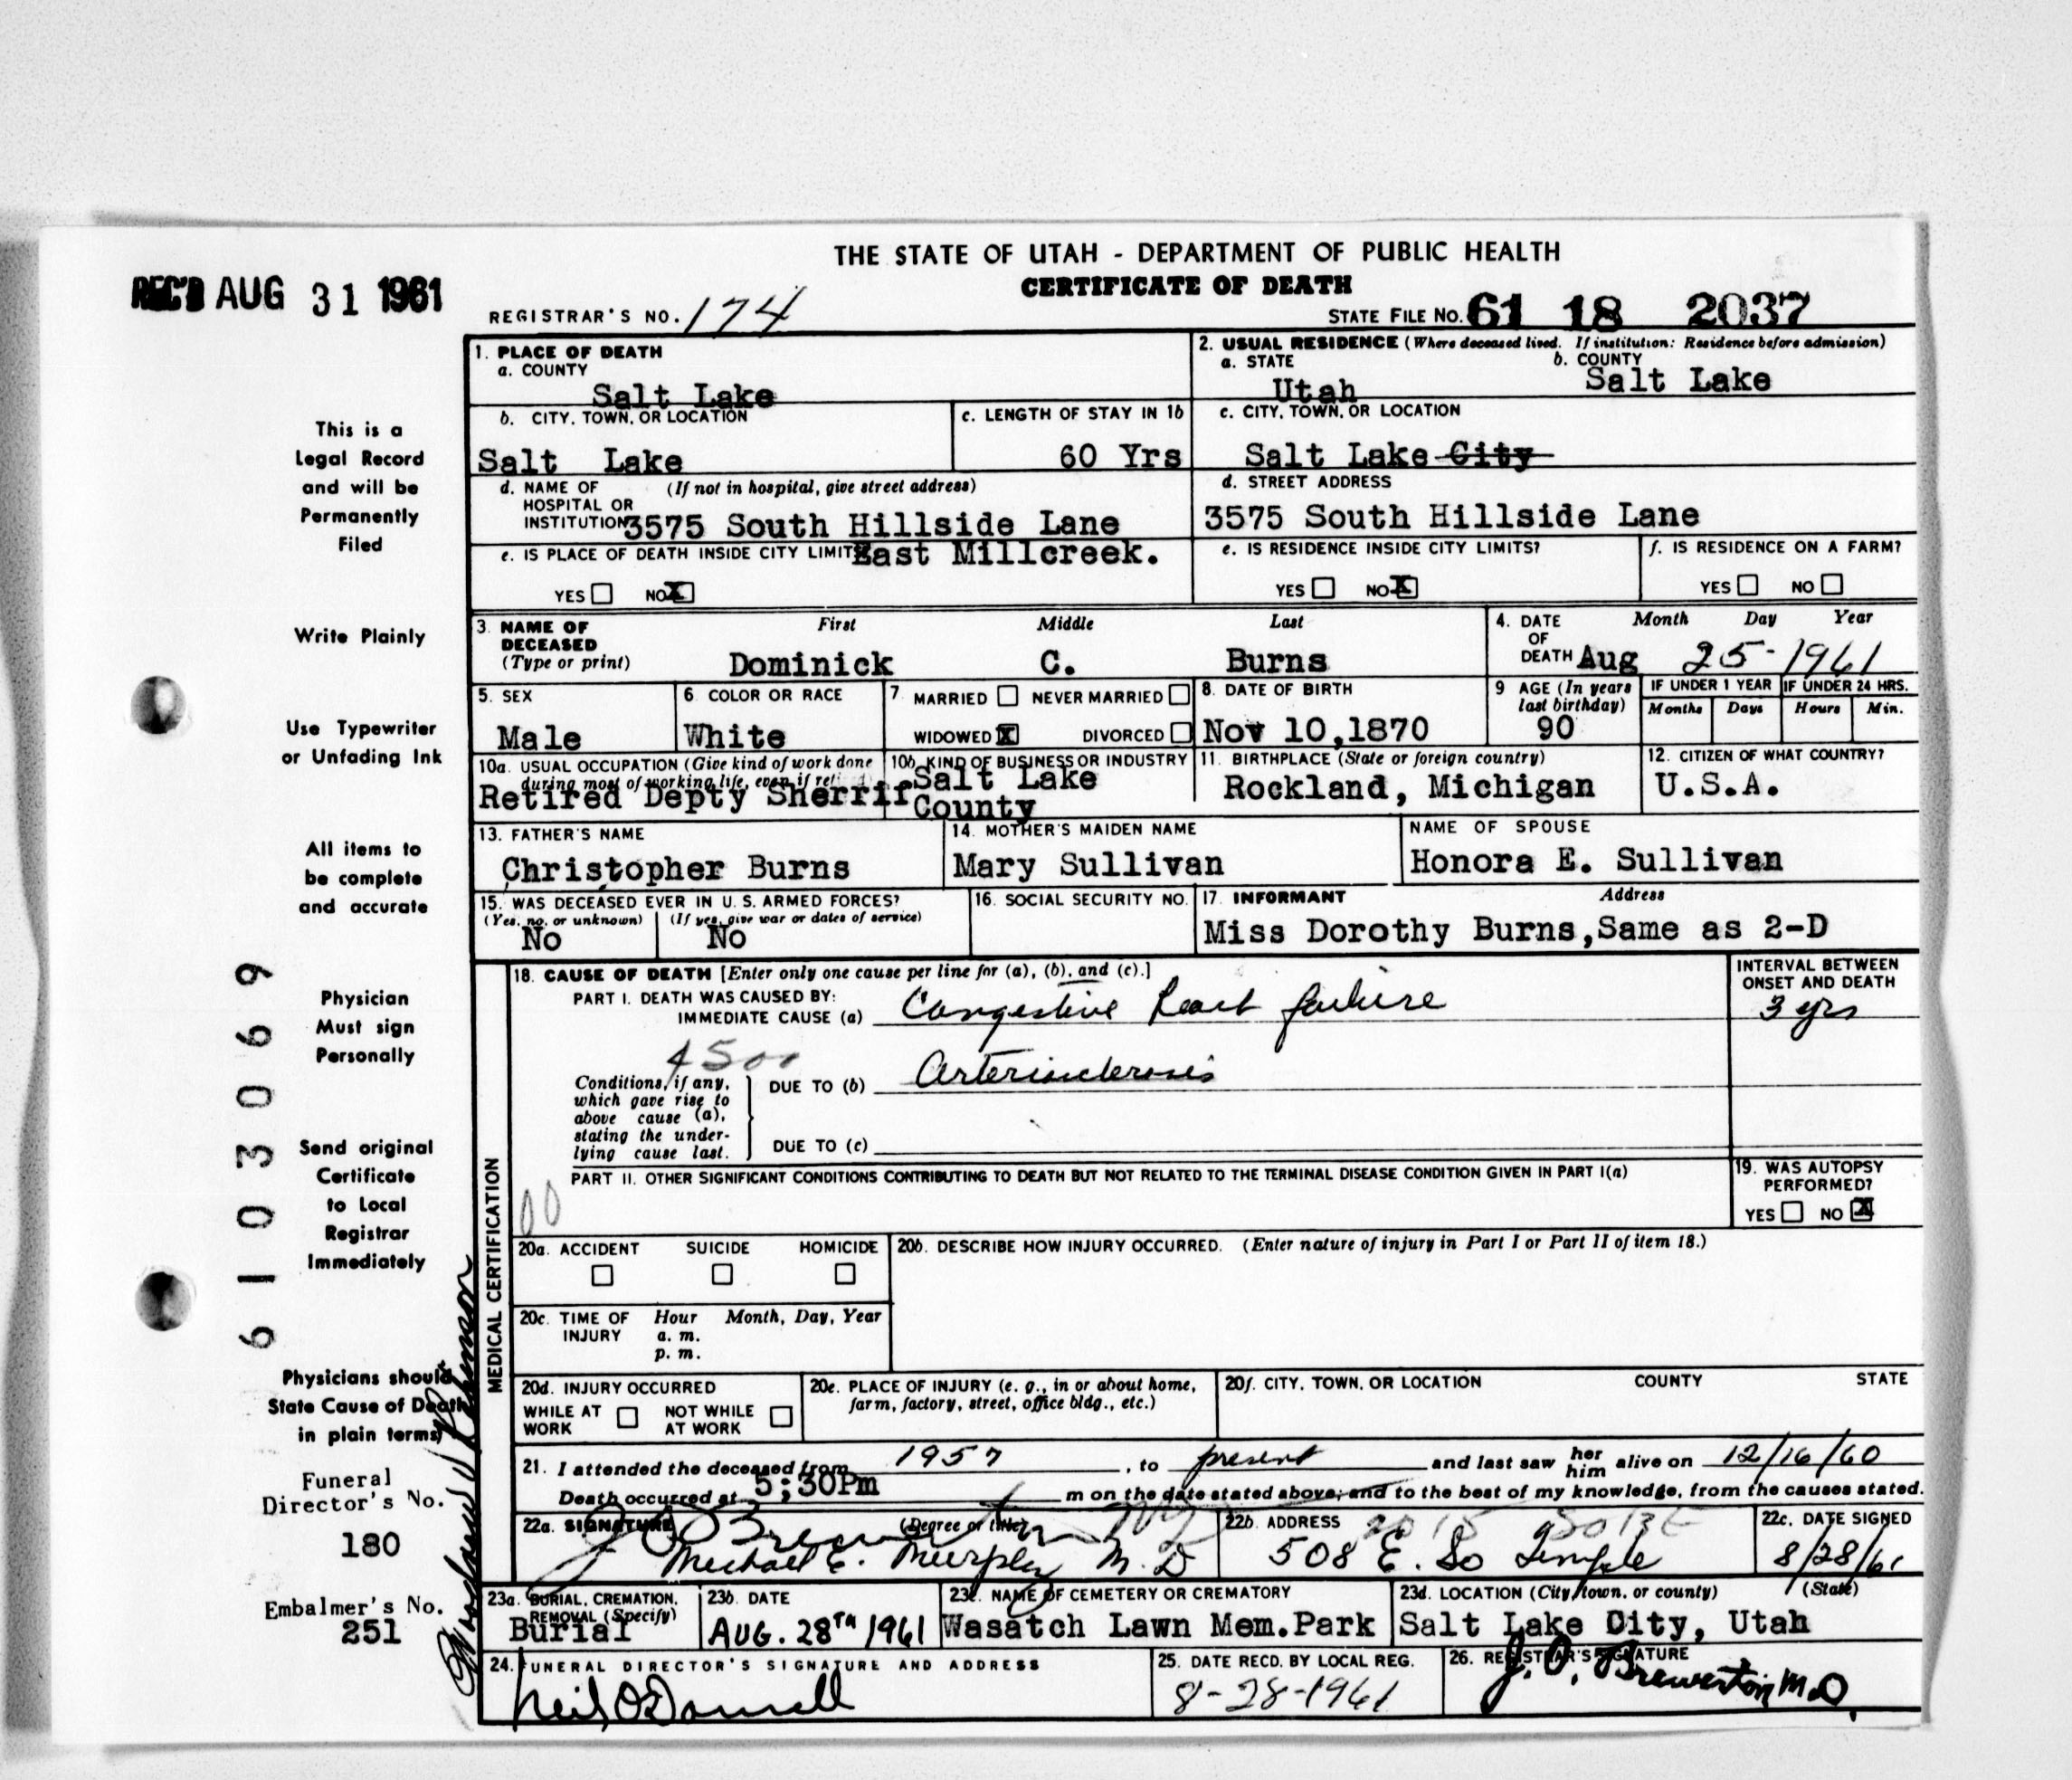 THE STATE OF UTAH - DEPARTMENT OF PUBLIC HEALTH
CERTIFICATE OF DEATH
REC'D AUG 31 1961
REGISTRAR'S NO. 174
STATE FILE No. 61 18 2037
1. PLACE OF DEATH
a. COUNTY
Salt Lake
2. USUAL RESIDENCE (Where deceased lived. If institution: Residence before admission)
a. STATE
Utah
b. COUNTY
Salt Lake
b. CITY, TOWN, OR LOCATION
Salt Lake
c. LENGTH OF STAY IN 1b
60 Yrs
c. CITY, TOWN, OR LOCATION
Salt Lake City
d. NAME OF (If not in hospital, give street address)
HOSPITAL OR
INSTITUTION 3575 South Hillside Lane
d. STREET ADDRESS
3575 South Hillside Lane
e. IS PLACE OF DEATH INSIDE CITY LIMITS East Millcreek.
YES NO X
e. IS RESIDENCE INSIDE CITY LIMITS?
YES NO X
f. IS RESIDENCE ON A FARM?
YES NO
3. NAME OF DECEASED
(Type or print)
First Middle Last
Dominick C. Burns
4. DATE OF DEATH
Month Day Year
Aug 25-1961
5. SEX
Male
6. COLOR OR RACE
White
7. MARRIED NEVER MARRIED
WIDOWED X DIVORCED
8. DATE OF BIRTH
Nov 10,1870
9 AGE (In years last birthday)
90
IF UNDER 1 YEAR
Months Days
IF UNDER 24 HRS.
Hours Min.
10a. USUAL OCCUPATION (Give kind of work done
during most of working life, even if retired)
Retired Depty Sherrif
10b. KIND OF BUSINESS OR INDUSTRY
Salt Lake
County
11. BIRTHPLACE (State or foreign country)
Rockland, Michigan
12. CITIZEN OF WHAT COUNTRY?
U.S.A.
13. FATHER'S NAME
Christopher Burns
14. MOTHER'S MAIDEN NAME
Mary Sullivan
NAME OF SPOUSE
Honora E. Sullivan
15. WAS DECEASED EVER IN U. S. ARMED FORCES?
(Yes, no, or unknown) (If yes, give war or dates of service)
No No
16. SOCIAL SECURITY NO.
17. INFORMANT Address
Miss Dorothy Burns,Same as 2-D
MEDICAL CERTIFICATION
18. CAUSE OF DEATH [Enter only one cause per line for (a), (b), and (c).]
PART I. DEATH WAS CAUSED BY:
IMMEDIATE CAUSE (a) Congestive heart failure
INTERVAL BETWEEN
ONSET AND DEATH
3 yrs
4500
Conditions, if any,
which gave rise to
above cause (a),
stating the under-
lying cause last.
DUE TO (b) Arteriosclerosis
DUE TO (c)
PART II. OTHER SIGNIFICANT CONDITIONS CONTRIBUTING TO DEATH BUT NOT RELATED TO THE TERMINAL DISEASE CONDITION GIVEN IN PART I(a)
00
19. WAS AUTOPSY
PERFORMED?
YES NO X
20a. ACCIDENT SUICIDE HOMICIDE
20b. DESCRIBE HOW INJURY OCCURRED. (Enter nature of injury in Part I or Part II of item 18.)
20c. TIME OF INJURY
Hour Month, Day, Year
a. m.
p. m.
20d. INJURY OCCURRED
WHILE AT WORK NOT WHILE AT WORK
20e. PLACE OF INJURY (e. g., in or about home,
farm, factory, street, office bldg., etc.)
20f. CITY, TOWN, OR LOCATION COUNTY STATE
21. I attended the deceased from 1957, to present and last saw her him alive on 12/16/60
Death occurred at 5;30Pm m on the date stated above; and to the best of my knowledge, from the causes stated.
22a. SIGNATURE (Degree or title)
J O Brewerton MD
Michael E. Murphy M. D
22b. ADDRESS
508 E. So Temple
22c. DATE SIGNED
8/28/61
23a. BURIAL, CREMATION,
REMOVAL (Specify)
Burial
23b. DATE
AUG. 28TH 1961
23c. NAME OF CEMETERY OR CREMATORY
Wasatch Lawn Mem.Park
23d. LOCATION (City, town, or county) (State)
Salt Lake City, Utah
24. FUNERAL DIRECTOR'S SIGNATURE AND ADDRESS
Neil O'Donnell
25. DATE RECD. BY LOCAL REG.
8-28-1961
26. REGISTRAR'S SIGNATURE
J. O. Brewerton, M.D
This is a
Legal Record
and will be
Permanently
Filed
Write Plainly
Use Typewriter
or Unfading Ink
All items to
be complete
and accurate
Physician
Must sign
Personally
Send original
Certificate
to Local
Registrar
Immediately
Physicians should
State Cause of Death
in plain terms
Funeral
Director's No.
180
Embalmer's No.
251
6103069